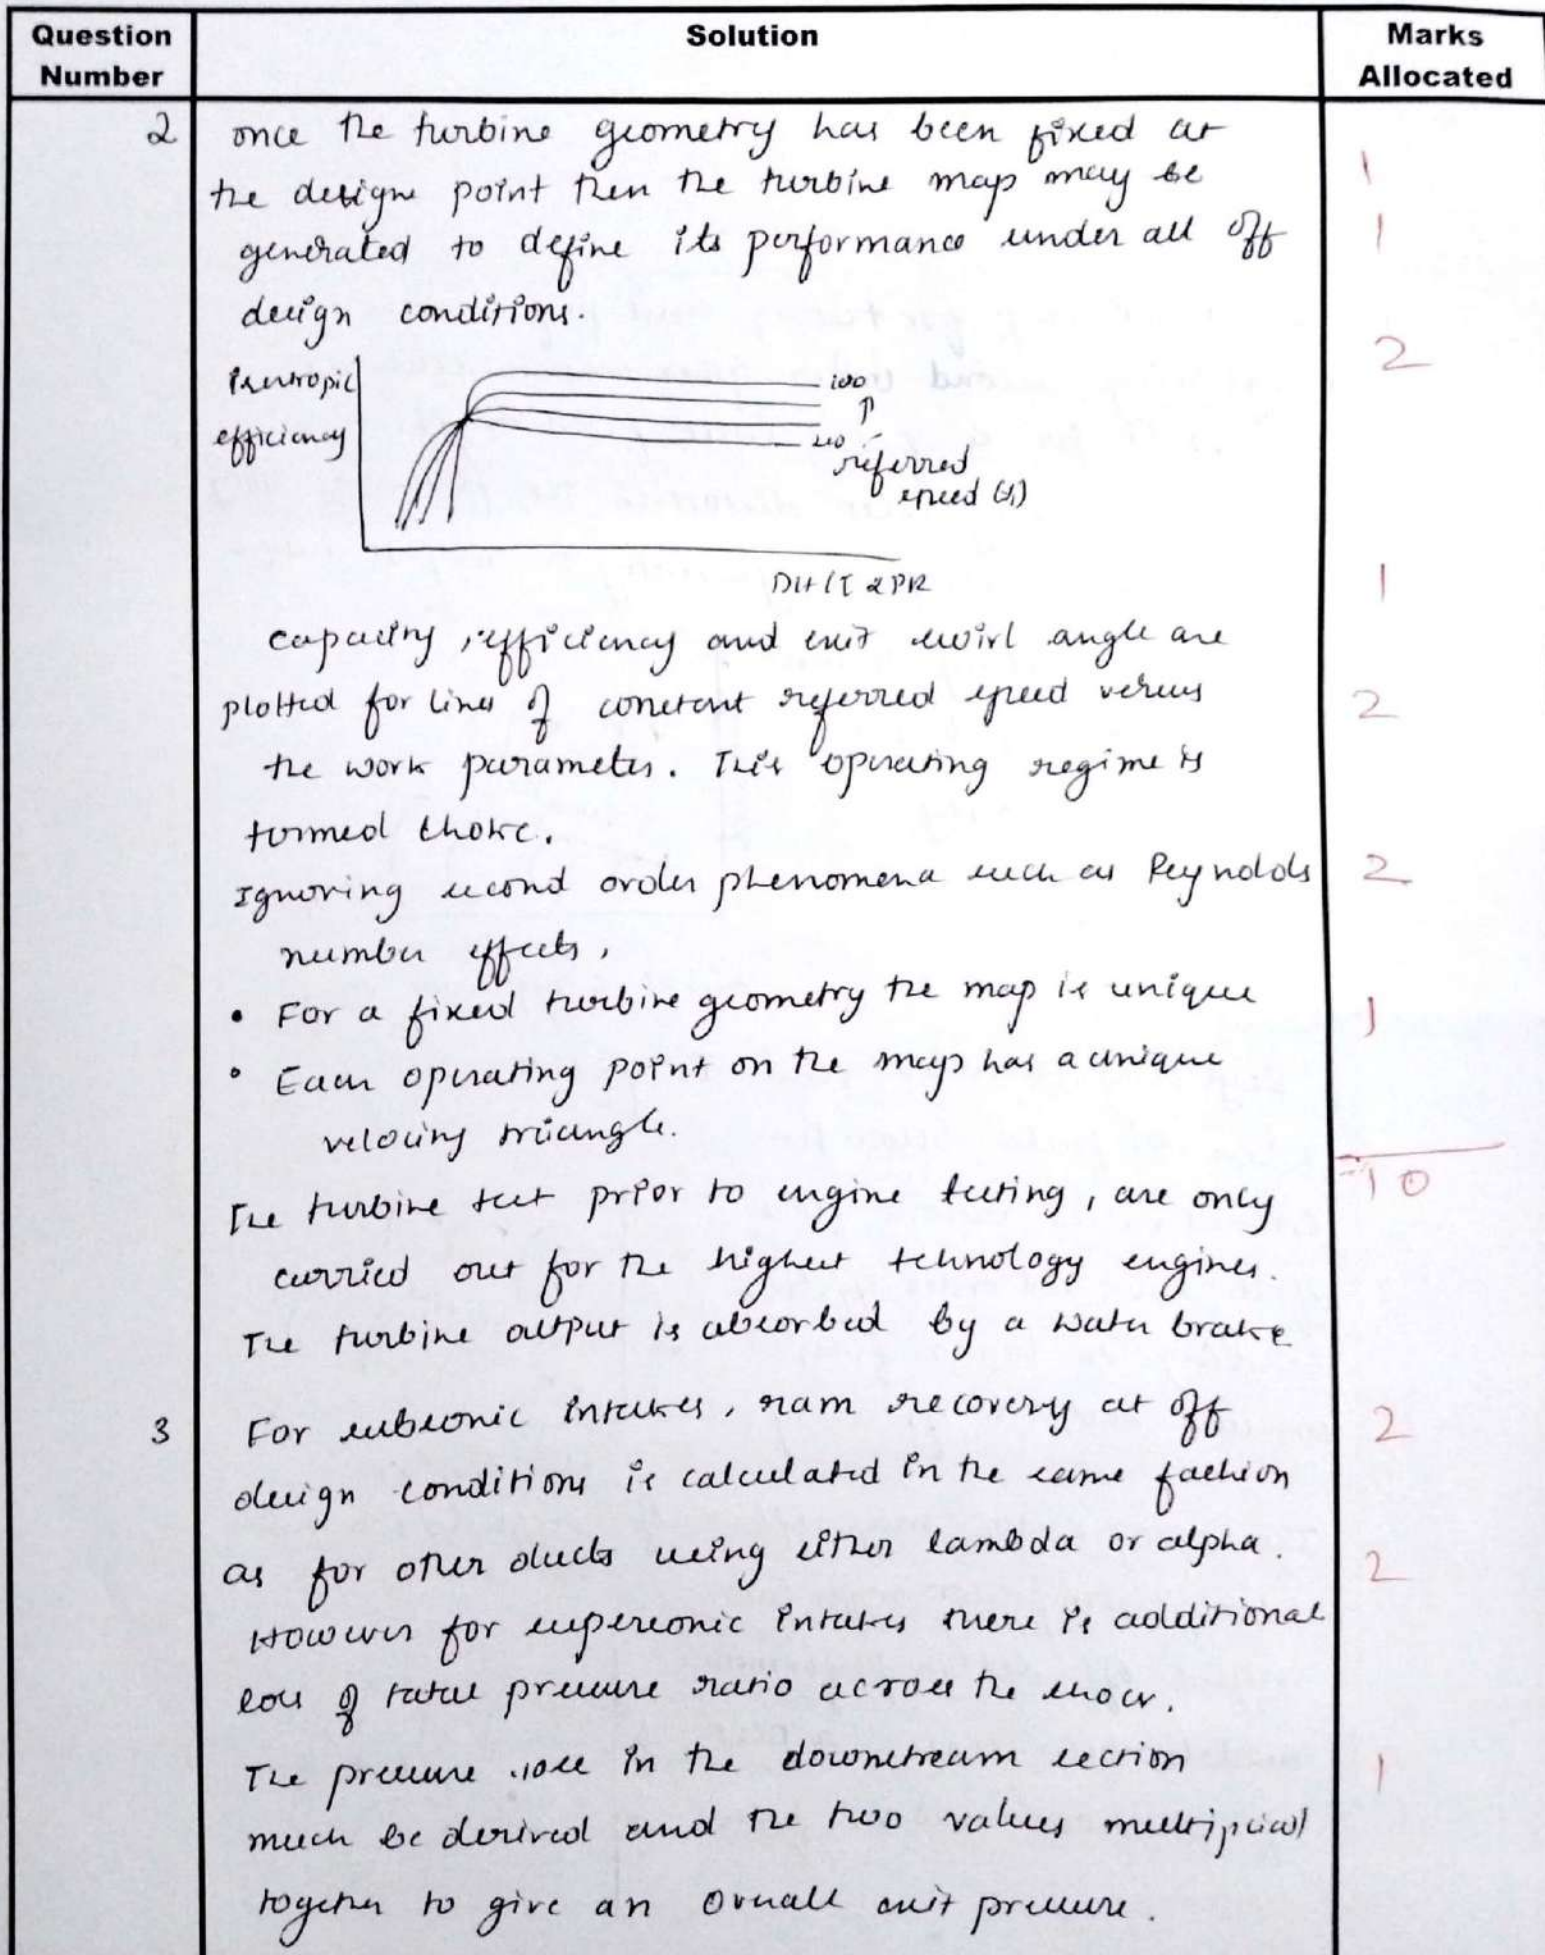 Question Number
Solution
Marks Allocated
2
once the turbine geometry has been fixed at
1
the designe point then the turbine map may be
generated to define its performance under all off
1
design conditions.
2
Isentropic
efficiency
100
referred
speed (%)
1
capacity, efficiency and exit swirl angle are
plotted for lines of constant referred speed versus
2
the work parameter. This operating regime is
termed choke.
Ignoring second order phenomena such as Reynolds
2
number effects,
• For a fixed turbine geometry the map is unique
1
• Each operating point on the map has a unique
velocity triangle.
10
The turbine test prior to engine testing, are only
carried out for the highest technology engines.
The turbine output is absorbed by a water brake
3
For subsonic intakes, ram recovery at off
2
design conditions is calculated in the same fashion
as for other ducts using either lambda or alpha.
2
However for supersonic intakes there is additional
loss of total pressure ratio across the shock.
The pressure loss in the downstream section
1
much be derived and the two values multiplied
together to give an overall exit pressure.